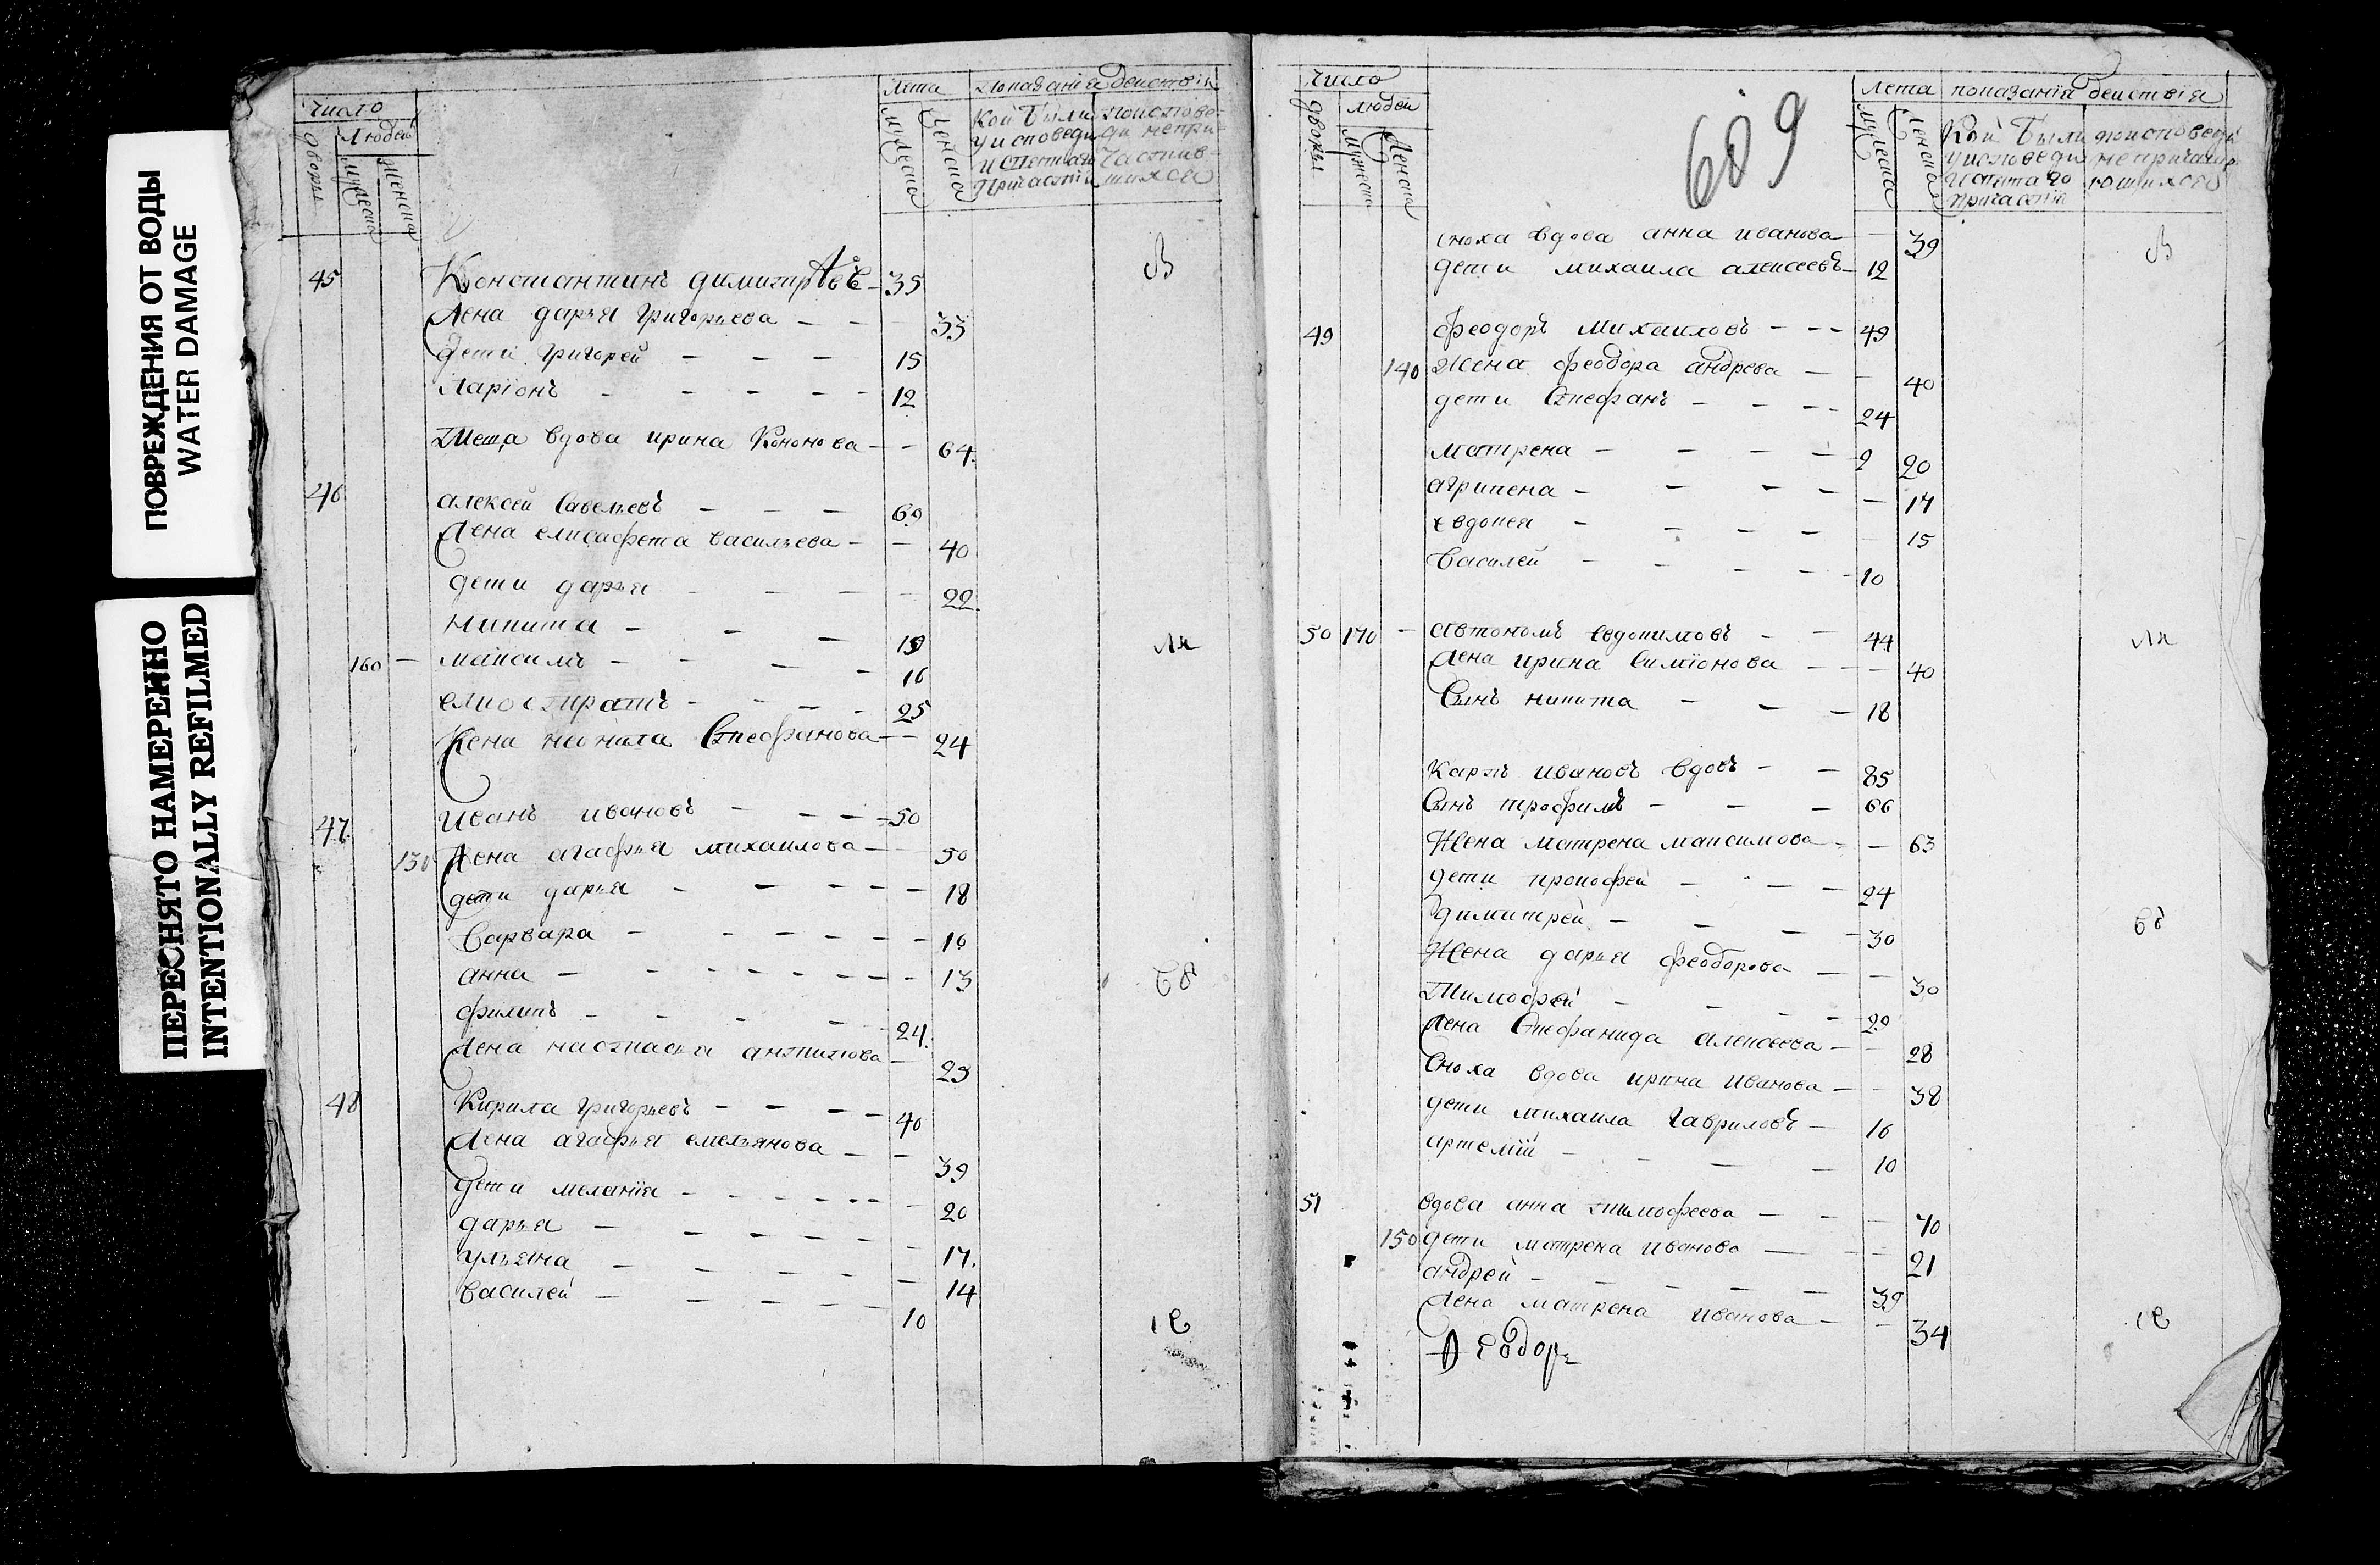 ПОВРЕЖДЕНИЯ ОТ ВОДЫ
WATER DAMAGE
ПЕРЕСНЯТО НАМЕРЕННО
INTENTIONALLY REFILMED
число
дворы
людей
мужеска
женска
лета
мужеска
женска
показанія действія
Кои были у исповеди и святаго причастія
45 Константинъ димитрѣевъ 35
Жена дарья григорьева 33
дети григорей 15
Ларіонъ 12
Теща вдова ирина Кононова 64
46 алексей савельевъ 69
Жена елисафета васильева 40
дети дарья 22
никита 19
160 маѯимъ 16
елисстратъ 25
Жена неонила Стефанова 24
47 иванъ ивановъ 50
130 Жена агафья михаилова 50
дети дарья 18
варвара 16
анна 13
филипъ 24
Жена настасья антипова 25
48 Кирила григорьевъ 40
Жена агафья емельянова 39
дети меланія 20
дарья 17
ульяна 14
василей 10
число
дворы
людей
мужеска
женска
609
лета
мужеска
женска
показанія действія
Кои были у исповеди и святаго причастія
сноха вдова анна иванова 39
дети михаила алексеевъ 12
49 феодоръ михаиловъ 49
140 Жена феодора андреева 40
дети Стефанъ 24
матрена 20
агрипена 17
евдокея 15
василей 10
50 170 автономъ евдокимовъ 44
Жена ирина симіонова 40
Сынъ никита 18
Карпъ ивановъ вдовъ 85
Сынъ трофимъ 66
Жена матрена максимова 63
дети прокофей 24
димитрей 30
Жена дарья феодорова 30
Тимофей 29
Жена Стефанида алексеева 28
Сноха вдова ирина иванова 38
дети михаила гавриловъ 16
артемій 10
51 вдова анна тимофеева 70
150 дети матрена иванова 21
андрей 39
Жена матрена иванова 34
Ѳеодоръ